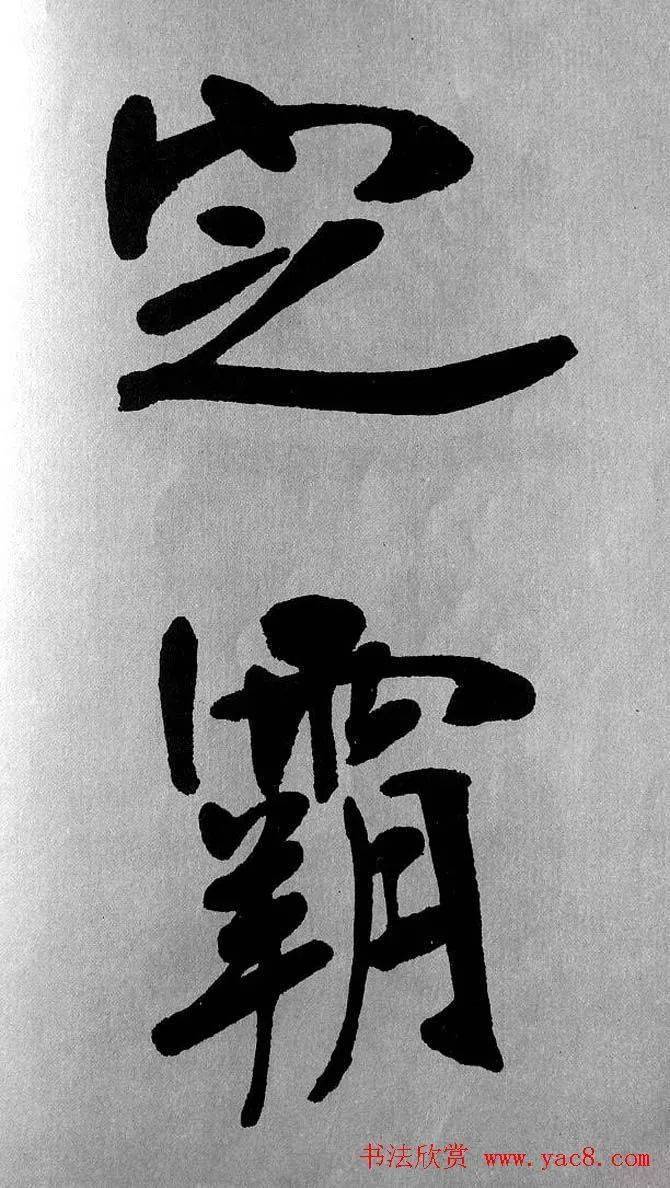 定
霸
书法欣赏 www.yac8.com